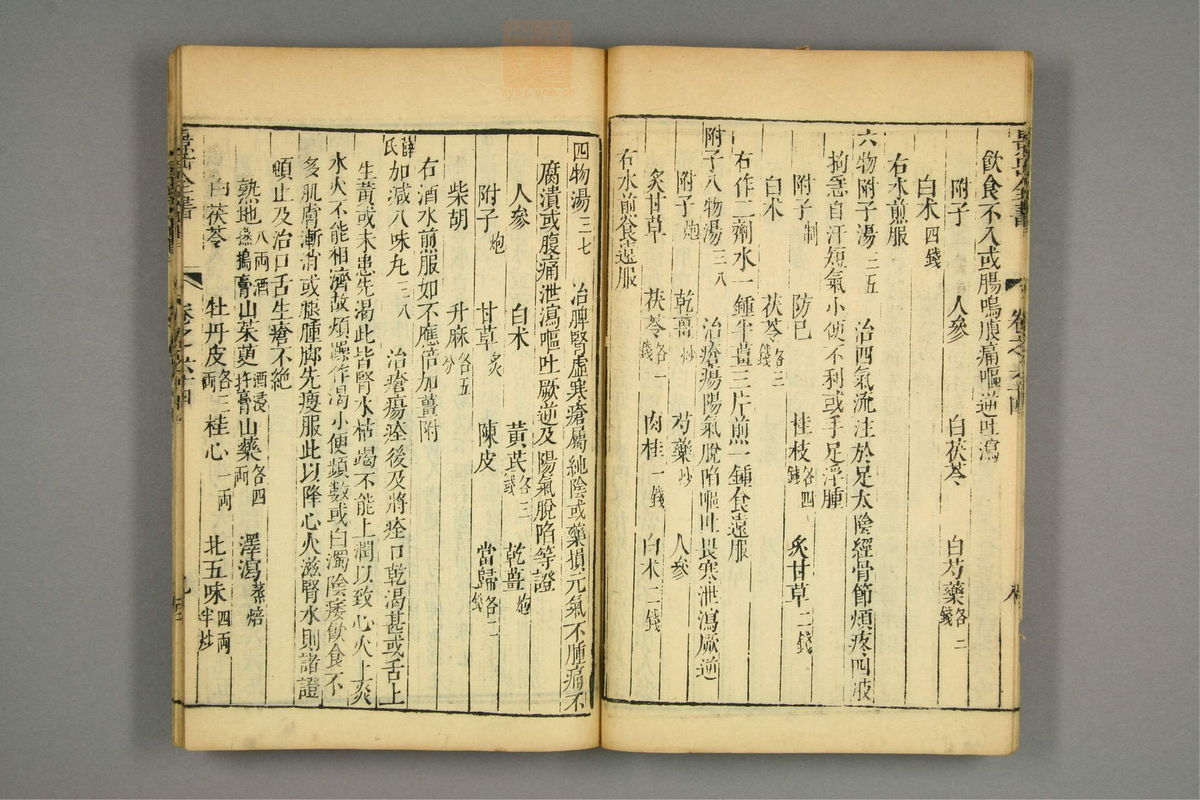 景岳全書
卷之六十四
飲食不入或腸鳴腹痛嘔逆吐瀉
附子 人參 白茯苓 白芍藥各二錢
白术四錢
右水煎服
六物附子湯二五 治四氣流注於足太陰經骨節煩疼四肢
拘急自汗短氣小便不利或手足浮腫
附子制 防已 桂枝各四錢 炙甘草二錢
白术 茯苓各三錢
右作二劑水一鍾半薑三片煎一鍾食遠服
附子八物湯三八 治瘡瘍陽氣脫陷嘔吐畏寒泄瀉厥逆
附子炮 乾薑炒 芍藥炒 人參
炙甘草 茯苓各一錢 肉桂一錢 白术二錢
右水煎食遠服
四物湯三七 治脾腎虛寒瘡屬純陰或藥損元氣不腫痛不
腐潰或腹痛泄瀉嘔吐厥逆及陽氣脫陷等證
人參 白术 黃芪各三錢 乾薑炮
附子炮 甘草炙 陳皮 當歸各二錢
柴胡 升麻各五分
右酒水煎服如不應倍加薑附
薛氏加減八味丸三八 治瘡瘍痊後及將痊口乾渴甚或舌上
生黃或未患先渴此皆腎水枯竭不能上潤以致心火上炎
水火不能相濟故煩躁作渴小便頻數或白濁陰痿飲食不
多肌膚漸消或腿腫脚先瘦服此以降心火滋腎水則諸證
頓止及治口舌生瘡不絕
熟地八兩酒蒸搗膏 山茱萸酒浸杵膏 山藥各四兩 澤瀉蒸焙
白茯苓 牡丹皮各三兩 桂心一兩 北五味四兩半炒
景岳全書
卷之六十四